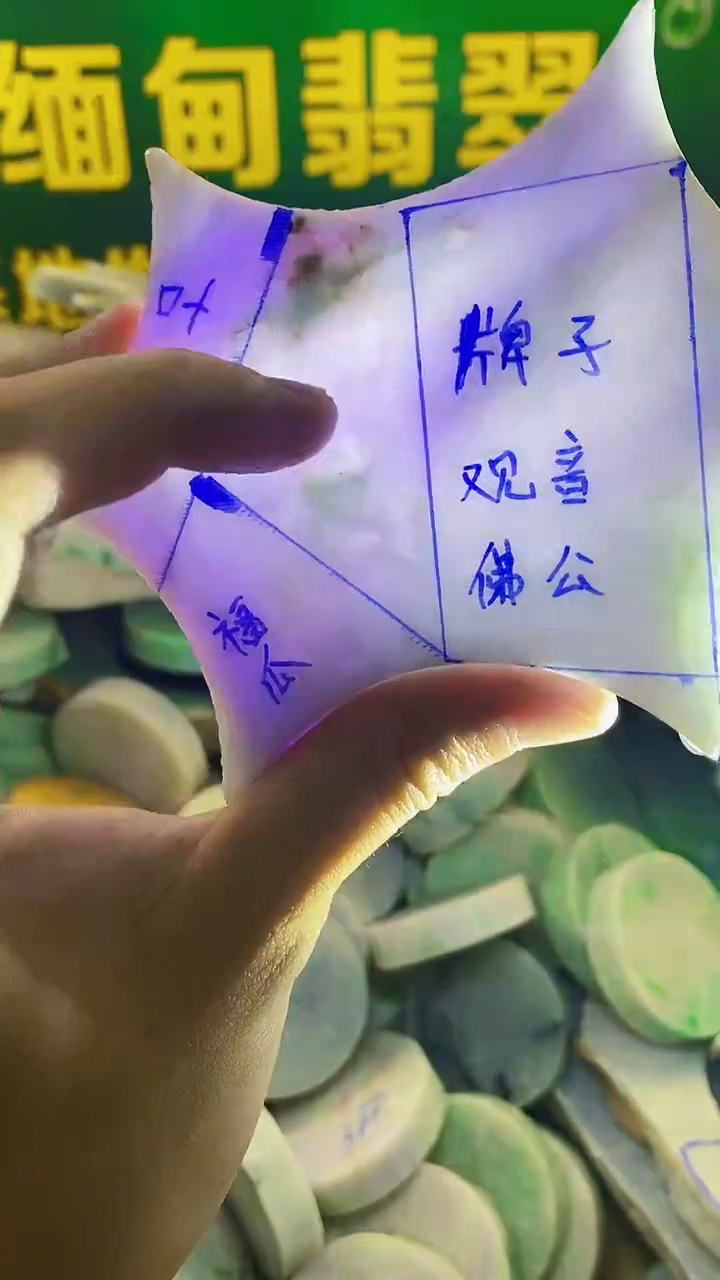 缅甸翡翠
牌子
观音
佛公
福
瓜